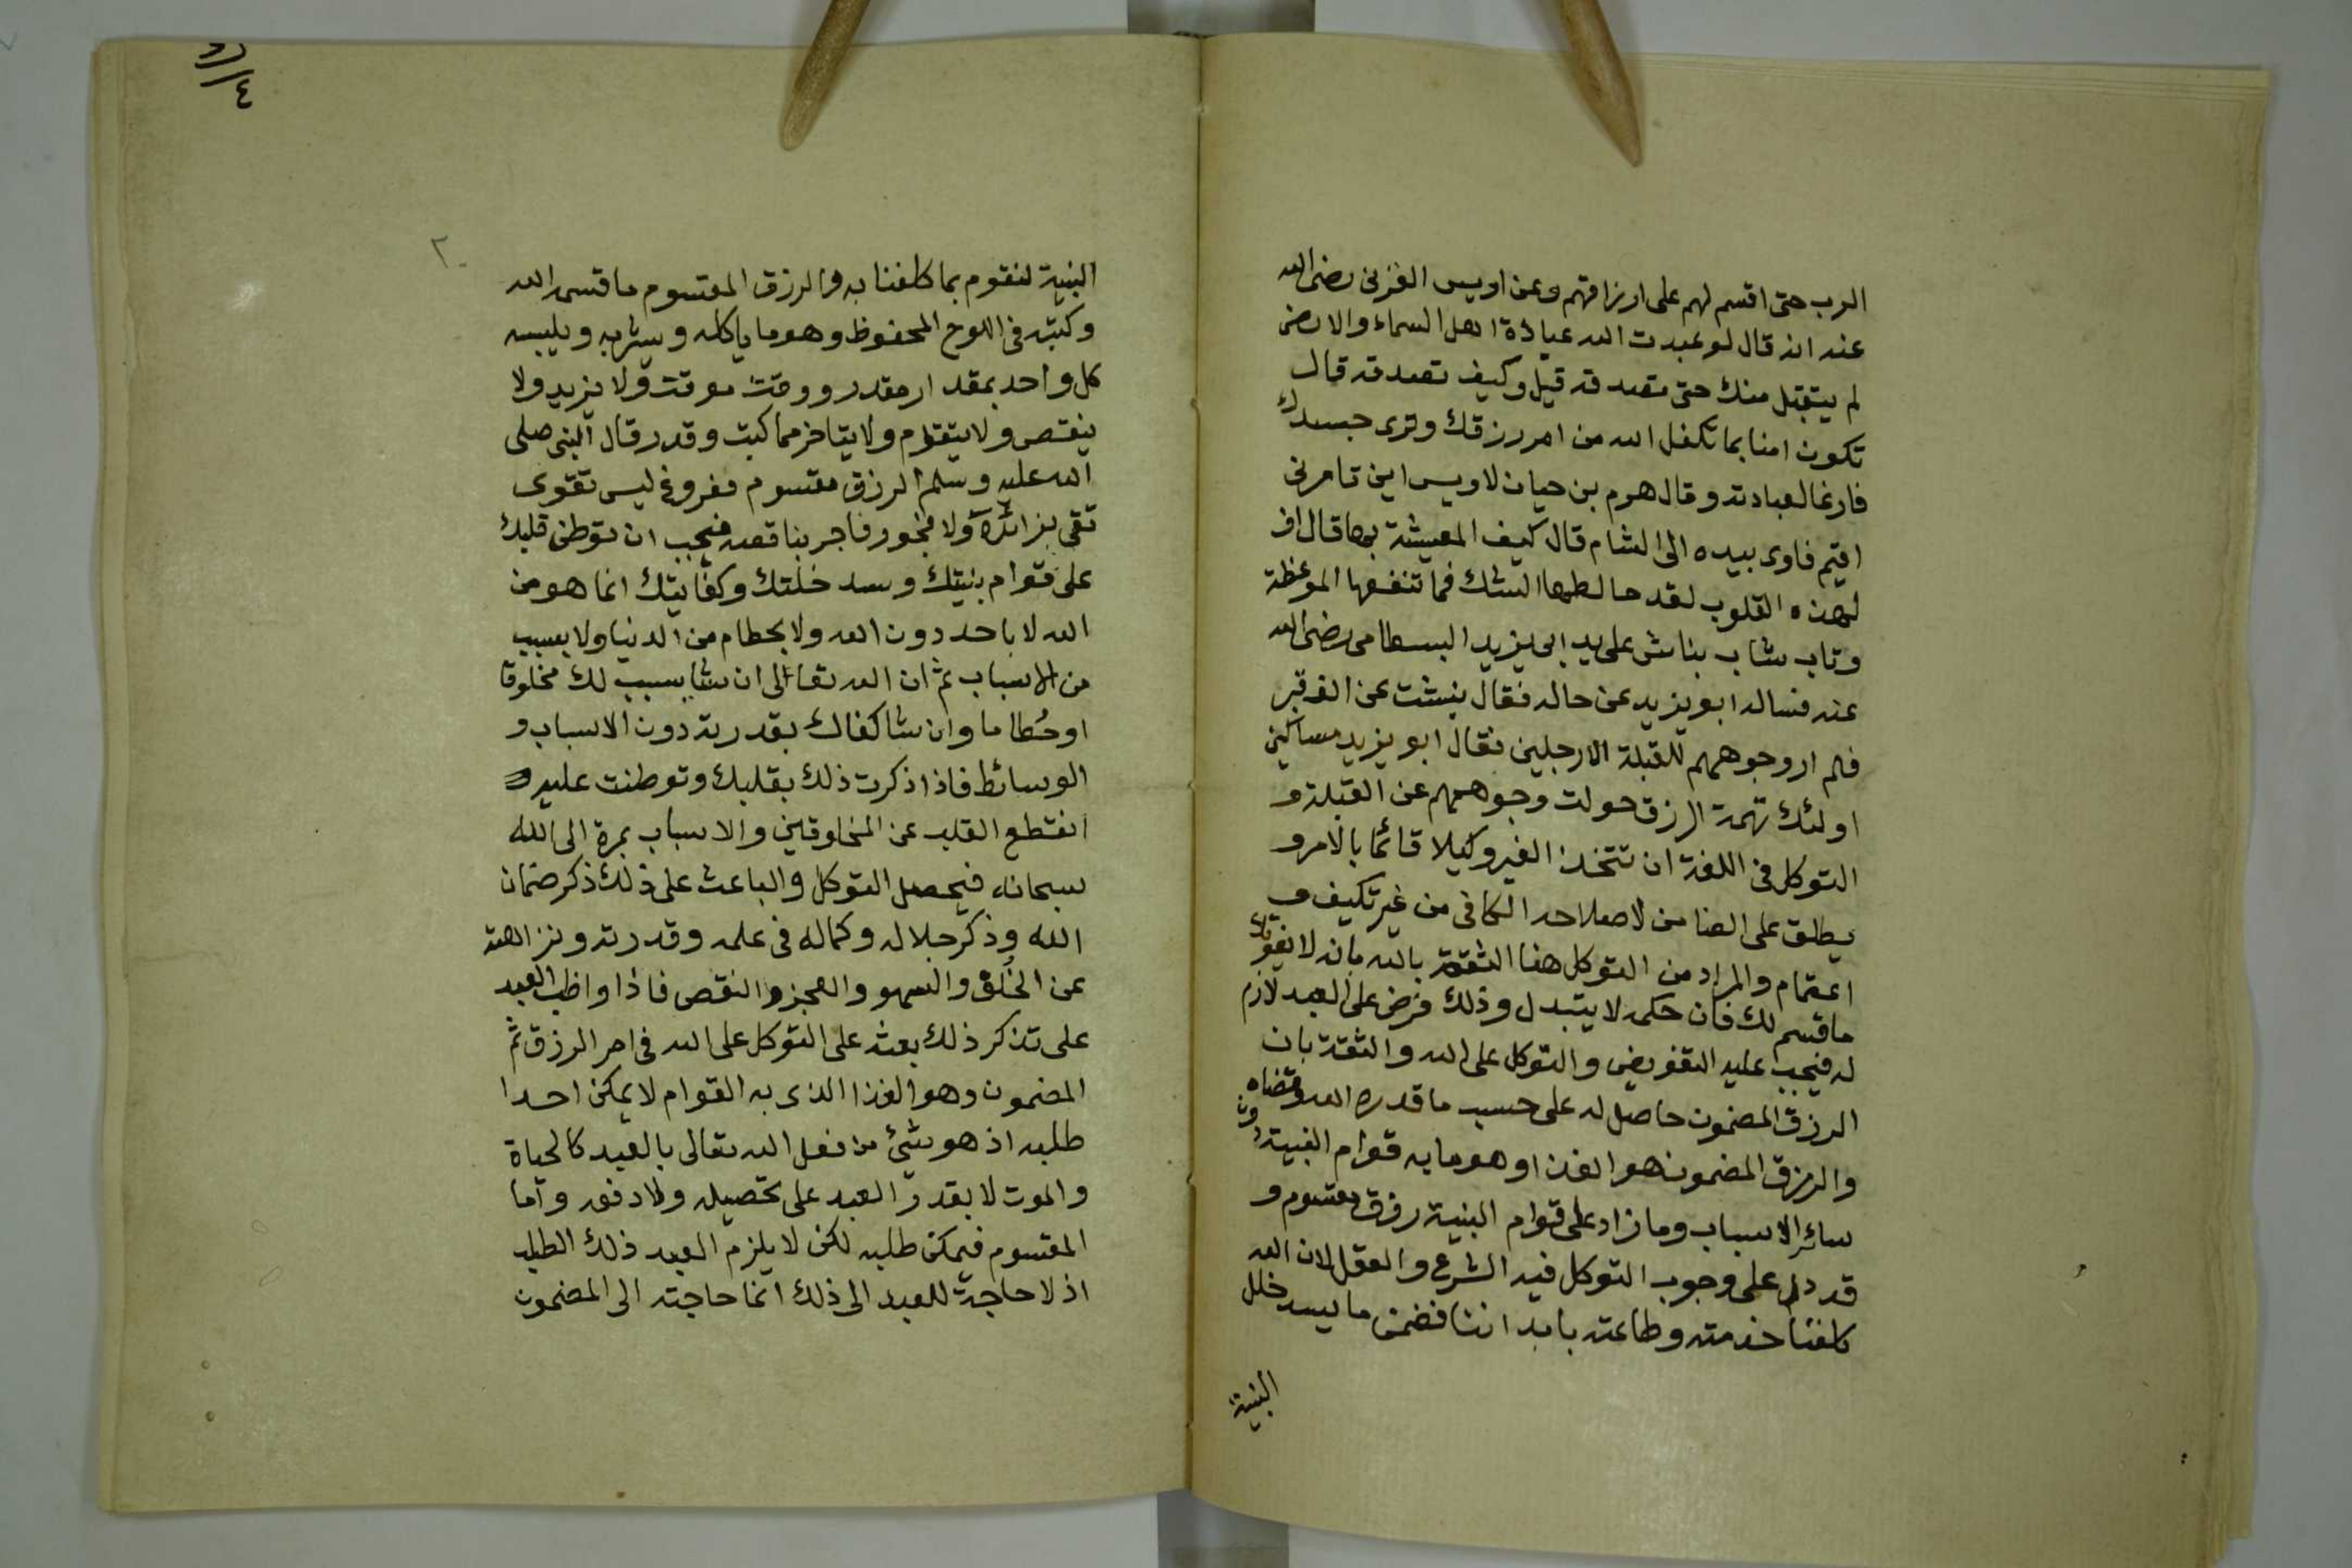 الرب حتى اقسم لهم على ارزاقهم وعن اويس القرنى رضى الله
عنه انه قال لو عبدت الله عبادة اهل السماء والارض
لم يتقبل منك حتى تصدقه قيل وكيف تصدقه قال
تكون امنا بما تكفل الله من امر رزقك وترى جسدك
فارغا لعبادته وقال هرم بن حيان لاويس اين تامرنى
اقيم فاوى بيده الى الشام قال كيف المعيشة بها قال اف
لهذه القلوب لقد خالطها الشك فما تنفعها الموعظة
وتاب شاب بناش على يد ابى يزيد البسطامى رضى الله
عنه فساله ابو يزيد عن حاله فقال نبشت عن الف قبر
فلم ار وجوههم للقبلة الا رجلين فقال ابو يزيد مساكين
اولئك تهمة الرزق حولت وجوههم عن القبلة و
التوكل فى اللغة ان تتخذ الغير وكيلا قائما بالامر و
يطلق على الضامن لاصلاحه الكافى من غير تكيف و
اعتمام والمراد من التوكل هنا الثقة بالله بانه لا يفوتك
ما قسم لك فان حكمه لا يتبدل وذلك فرض على العبد لازم
له فيجب عليه التفويض والتوكل على الله والثقة بان
الرزق المضمون حاصل له على حسب ما قدره الله وقضاه
والرزق المضمون هو الغذا وهو ما به قوام البنية دون
سائر الاسباب وما زاد على قوام البنية رزق مقسوم و
قد دل على وجوب التوكل فيه الشرع والعقل لان الله
كلفنا خدمته وطاعته بابداننا فضمن ما يسد خلل
البنية
٢٠
البنية لنقوم بما كلفنا به والرزق المقسوم ما قسمه الله
وكتبه فى اللوح المحفوظ وهو ما ياكله ويشربه ويلبسه
كل واحد بمقدار مقدر ووقت موقت ولا يزيد ولا
ينقص ولا يتقدم ولا يتاخر مما كتب وقدر قال النبى صلى
الله عليه وسلم الرزق مقسوم مفروغ ليس تقوى
تقى بزائده ولا فجور فاجر بناقصه فيجب ان توطن قلبك
على قوام بنيتك وسد خلتك وكفايتك انما هو من
الله لا باحد دون الله ولا بحطام من الدنيا ولا بسبب
من الاسباب ثم ان الله تعالى ان شا يسبب لك مخلوقا
او حُطاما وان شا كفاك بقدرته دون الاسباب و
الوسائط فاذا ذكرت ذلك بقلبك وتوطنت عليه و
انقطع القلب عن المخلوقين والاسباب بمرة الى الله
سبحانه فيحصل التوكل والباعث على ذلك ذكر ضمان
الله وذكر جلاله وكماله فى علمه وقدرته ونزاهته
عن الخُلق والسهو والعجز والنقص فاذا واظب العبد
على تذكر ذلك بعثه على التوكل على الله فى امر الرزق ثم
المضمون وهو الغذا الذى به القوام لا يمكن احدا
طلبه اذ هو شئ من فعل الله تعالى بالعبد كالحياة
والموت لا يقدر العبد على تحصيله ولا دفعه واما
المقسوم فيمكن طلبه لكن لا يلزم العبد ذلك الطلب
اذ لا حاجة للعبد الى ذلك انما حاجته الى المضمون